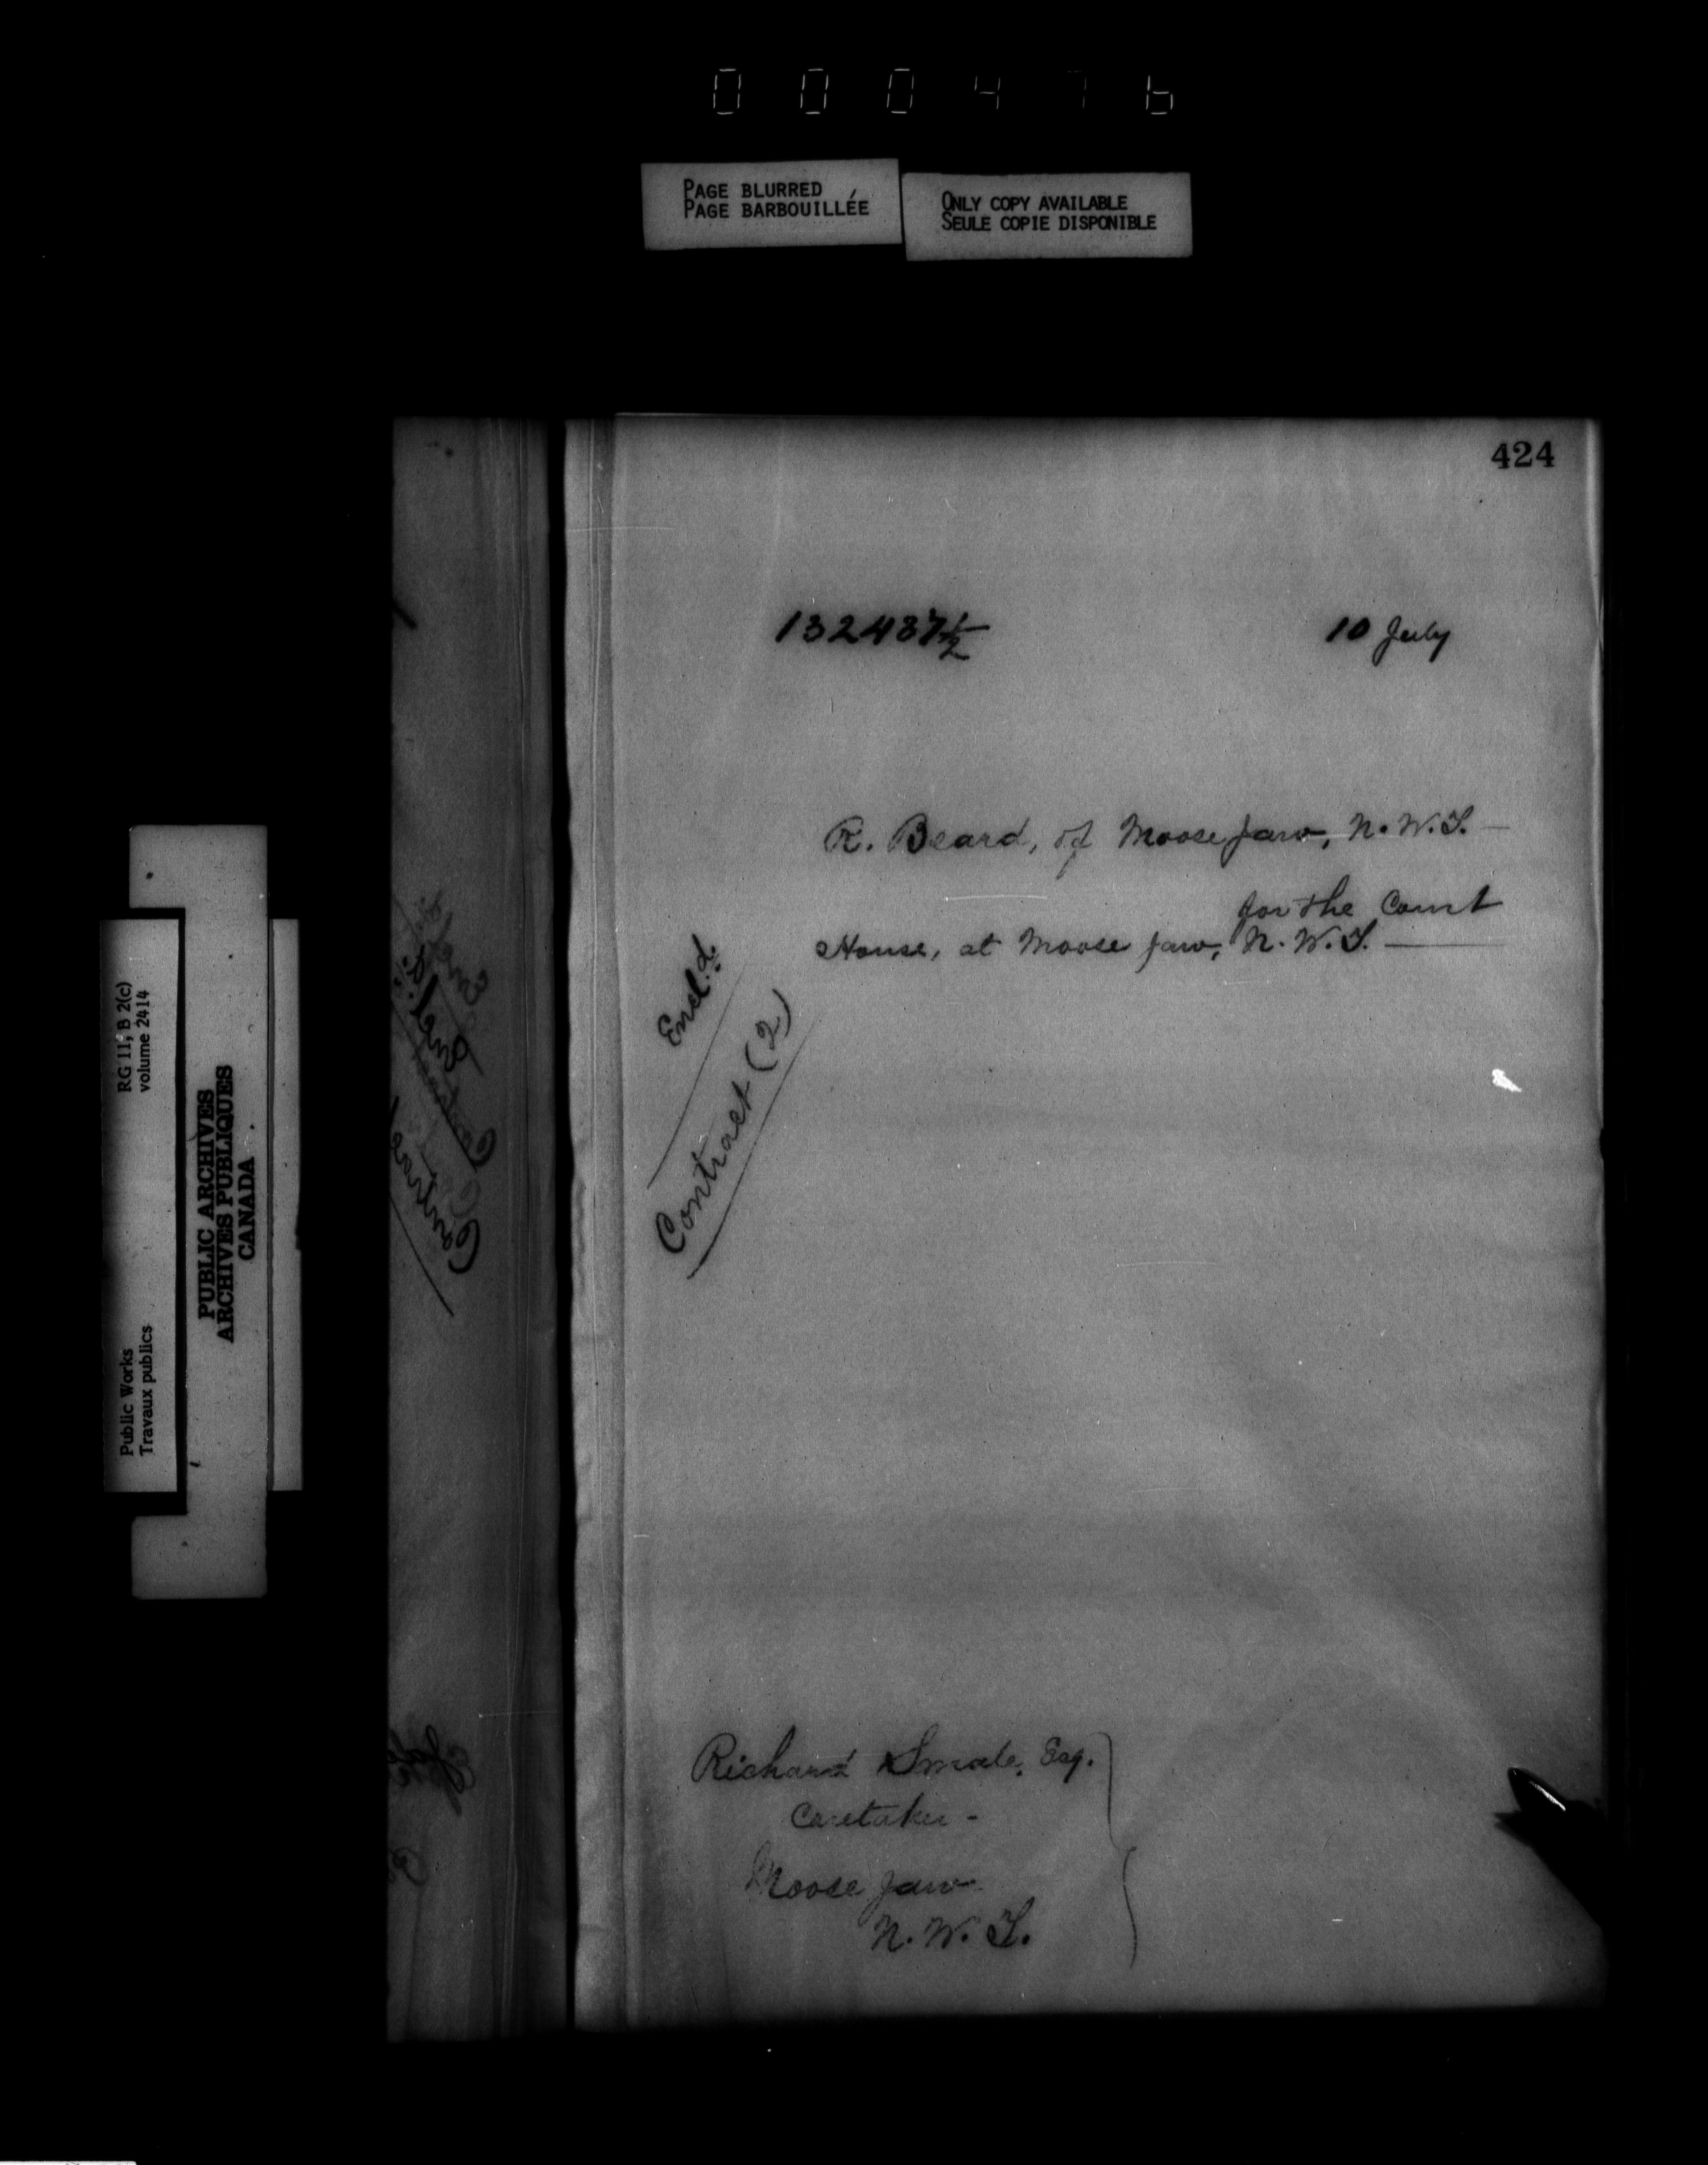 000476
PAGE BLURRED
PAGE BARBOUILLÉE
ONLY COPY AVAILABLE
SEULE COPIE DISPONIBLE
424
132437½
10 July
R. Beard, of Moose Jaw, N.W.T.
for the Court
House, at Moose Jaw, N.W.T.
Encl.d.
Contract (2)
Richard Smale, Esq.
Caretaker -
Moose Jaw
N.W.T.
RG 11, B 2(c)
volume 2414
Public Works
Travaux publics
PUBLIC ARCHIVES
ARCHIVES PUBLIQUES
CANADA